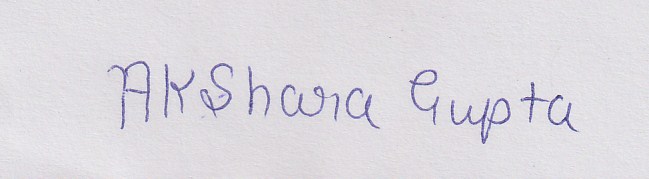 AKShara Gupta